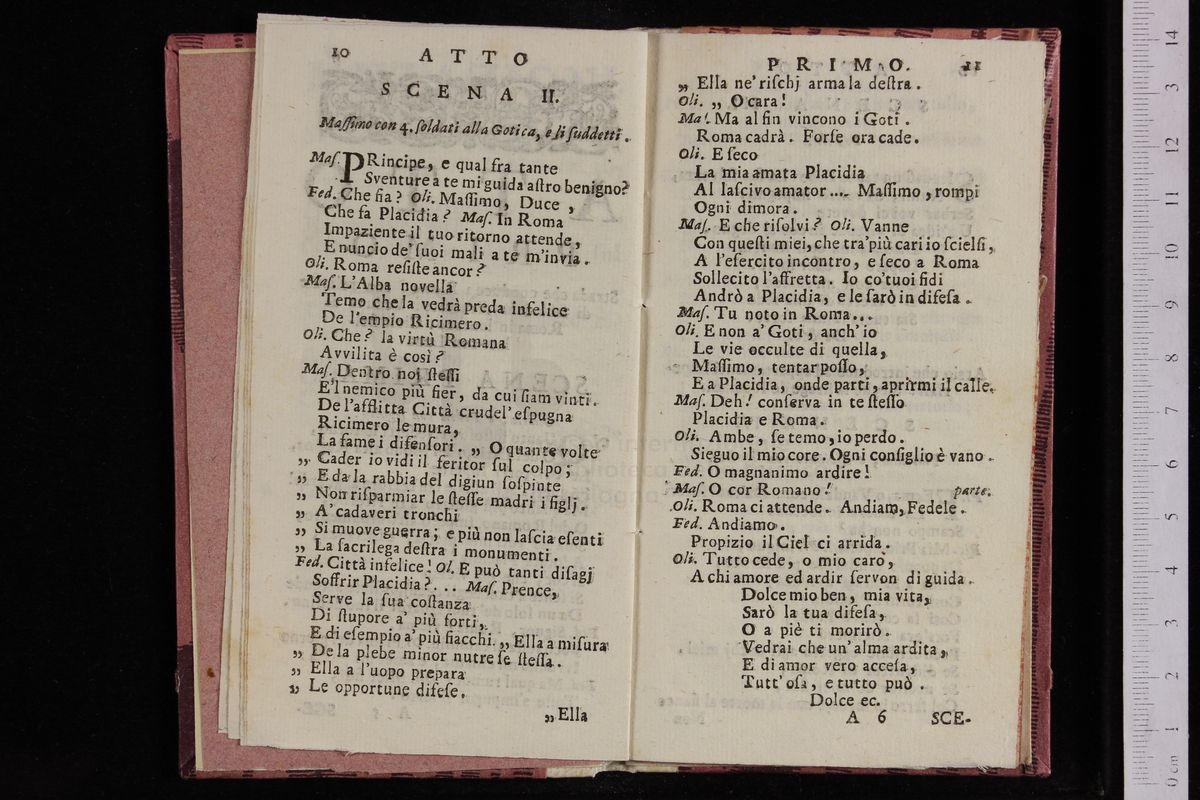 10 ATTO
SCENA II.
Maſſimo con 4. ſoldati alla Gotica, e li ſuddetti.
Maſ. PRincipe, e qual fra tante
Sventure a te mi guida aſtro benigno?
Fed. Che fia? Oli. Maſſimo, Duce,
Che fa Placidia? Maſ. In Roma
Impaziente il tuo ritorno attende,
E nuncio de' ſuoi mali a te m'invia.
Oli. Roma reſiſte ancor?
Maſ. L'Alba novella
Temo che la vedrà preda infelice
De l'empio Ricimero.
Oli. Che? la virtù Romana
Avvilita è così?
Maſ. Dentro noi ſteſſi
E'l nemico più fier, da cui ſiam vinti.
De l'afflitta Città crudel' eſpugna
Ricimero le mura,
La fame i difenſori. „ O quante volte
„ Cader io vidi il feritor ſul colpo;
„ E da la rabbia del digiun ſoſpinte
„ Non riſparmiar le ſteſſe madri i figlj.
„ A' cadaveri tronchi
„ Si muove guerra; e più non laſcia eſenti
„ La ſacrilega deſtra i monumenti.
Fed. Città infelice! Ol. E può tanti diſagj
Soffrir Placidia?... Maſ. Prence,
Serve la ſua coſtanza
Di ſtupore a' più forti,
E di eſempio a' più fiacchi. „ Ella a miſura
„ De la plebe minor nutre ſe ſteſſa.
„ Ella a l'uopo prepara
„ Le opportune difeſe.
„ Ella
PRIMO. 11
„ Ella ne' riſchj arma la deſtra.
Oli. „ O cara!
Maſ. Ma al fin vincono i Goti.
Roma cadrà. Forſe ora cade.
Oli. E ſeco
La mia amata Placidia
Al laſcivo amator.... Maſſimo, rompi
Ogni dimora.
Maſ. E che riſolvi? Oli. Vanne
Con queſti miei, che tra' più cari io ſcielſi,
A l'eſercito incontro, e ſeco a Roma
Sollecito l'affretta. Io co' tuoi fidi
Andrò a Placidia, e le ſarò in difeſa.
Maſ. Tu noto in Roma...
Oli. E non a' Goti, anch' io
Le vie occulte di quella,
Maſſimo, tentar poſſo,
E a Placidia, onde parti, aprirmi il calle.
Maſ. Deh! conſerva in te ſteſſo
Placidia e Roma.
Oli. Ambe, ſe temo, io perdo.
Sieguo il mio core. Ogni conſiglio è vano.
Fed. O magnanimo ardire!
Maſ. O cor Romano! parte.
Oli. Roma ci attende. Andiam, Fedele.
Fed. Andiamo.
Propizio il Ciel ci arrida.
Oli. Tutto cede, o mio caro,
A chi amore ed ardir ſervon di guida.
Dolce mio ben, mia vita,
Sarò la tua difeſa,
O a piè ti morirò.
Vedrai che un' alma ardita,
E di amor vero acceſa,
Tutt' oſa, e tutto può.
Dolce ec.
A 6 SCE-